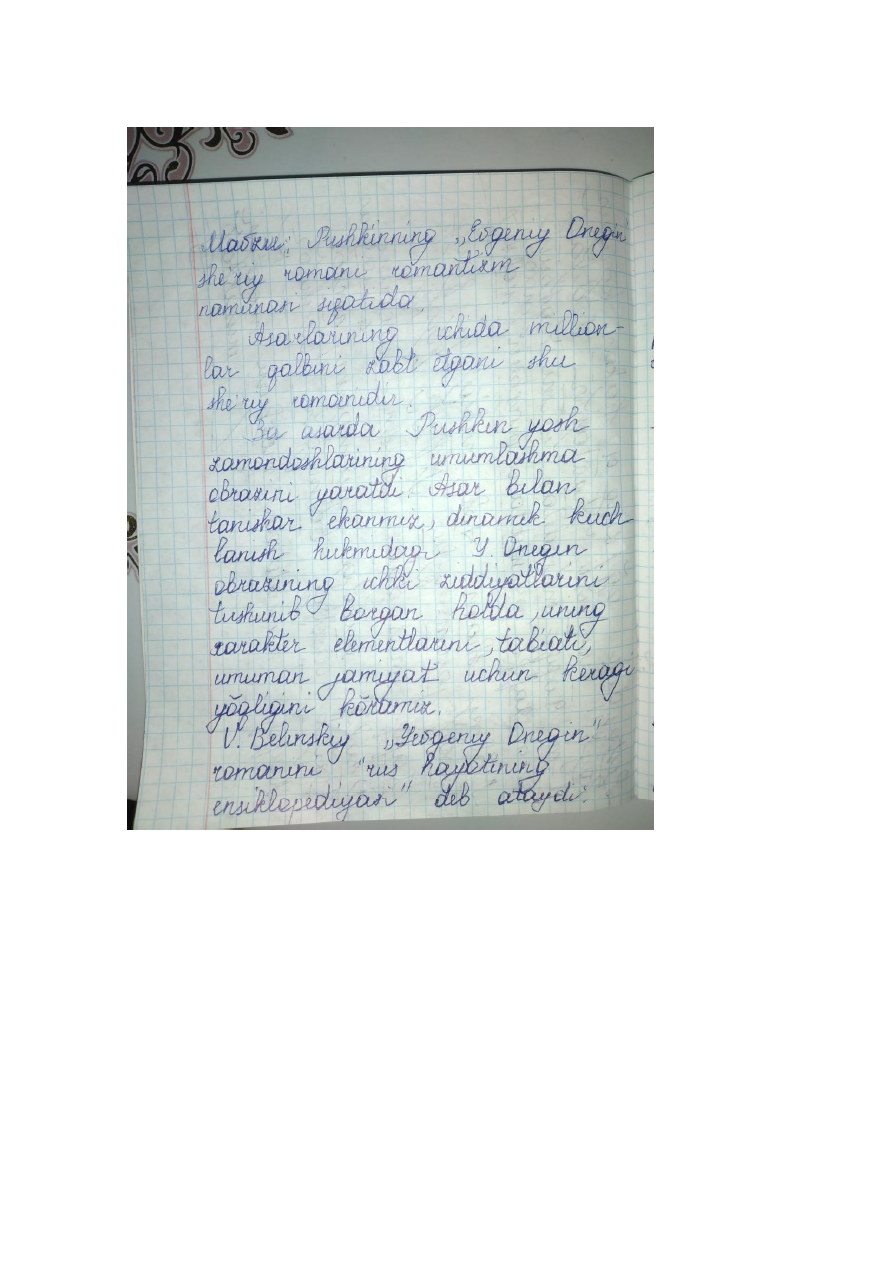 Мавзи: Pushkinning „Evgeniy Onegin"
she'riy romani romantizm
namunasi sifatida.
Asarlarining ichida million-
lar qalbini zabt etgani shu
she'riy romanidir.
Bu asarda Pushkin yosh
zamondoshlarining umumlashma
obrazini yaratdi. Asar bilan
tanishar ekanmiz, dinamik kuch
lanish hukmidagi Y. Onegin
obrazining ichki ziddiyatlarini
tushunib borgan holda, uning
xarakter elementlarini, tabiati,
umuman jamiyat uchun keragi
yŏqligini kŏramiz.
V. Belinskiy „Yevgeniy Onegin"
romanini "rus hayotining
ensiklopediyasi" deb ataydi.